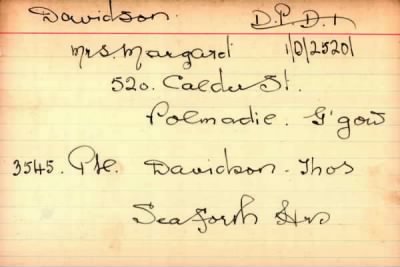 Davidson. D.P.D.1
Mrs. Margard 1/D/2520/
520. Calder St.
Polmadie. G'gow
3545. Pte. Davidson. Thos
Seaforth Hrs